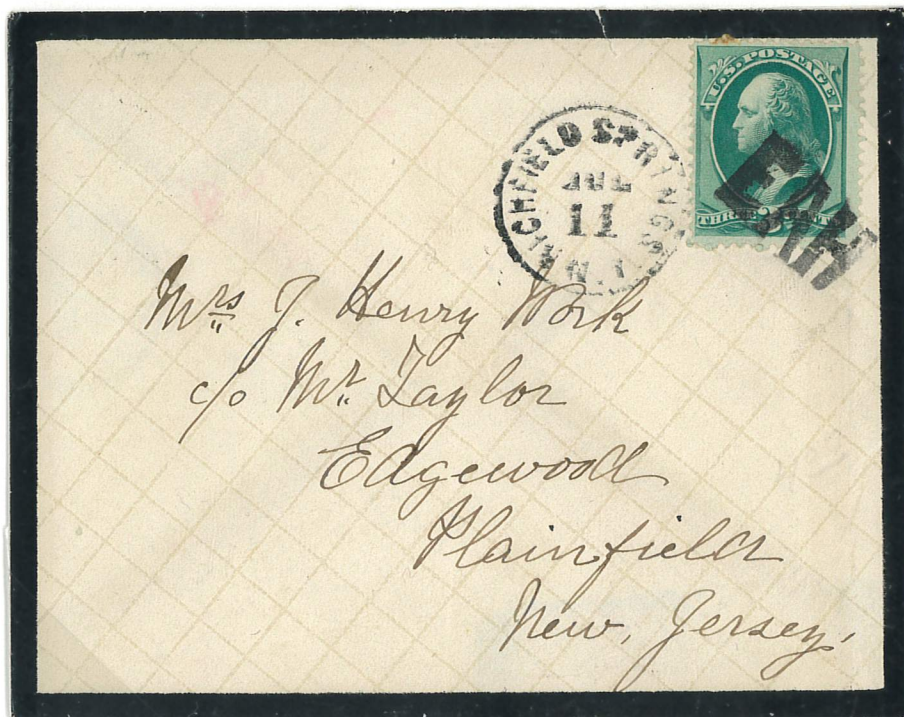 U.S. POSTAGE
THREE CENTS
RICHFIELD SPRINGS. N.Y.
JUL
11
Mrs J. Henry Work
c/o Mr. Taylor
Edgewood
Plainfield
New, Jersey.